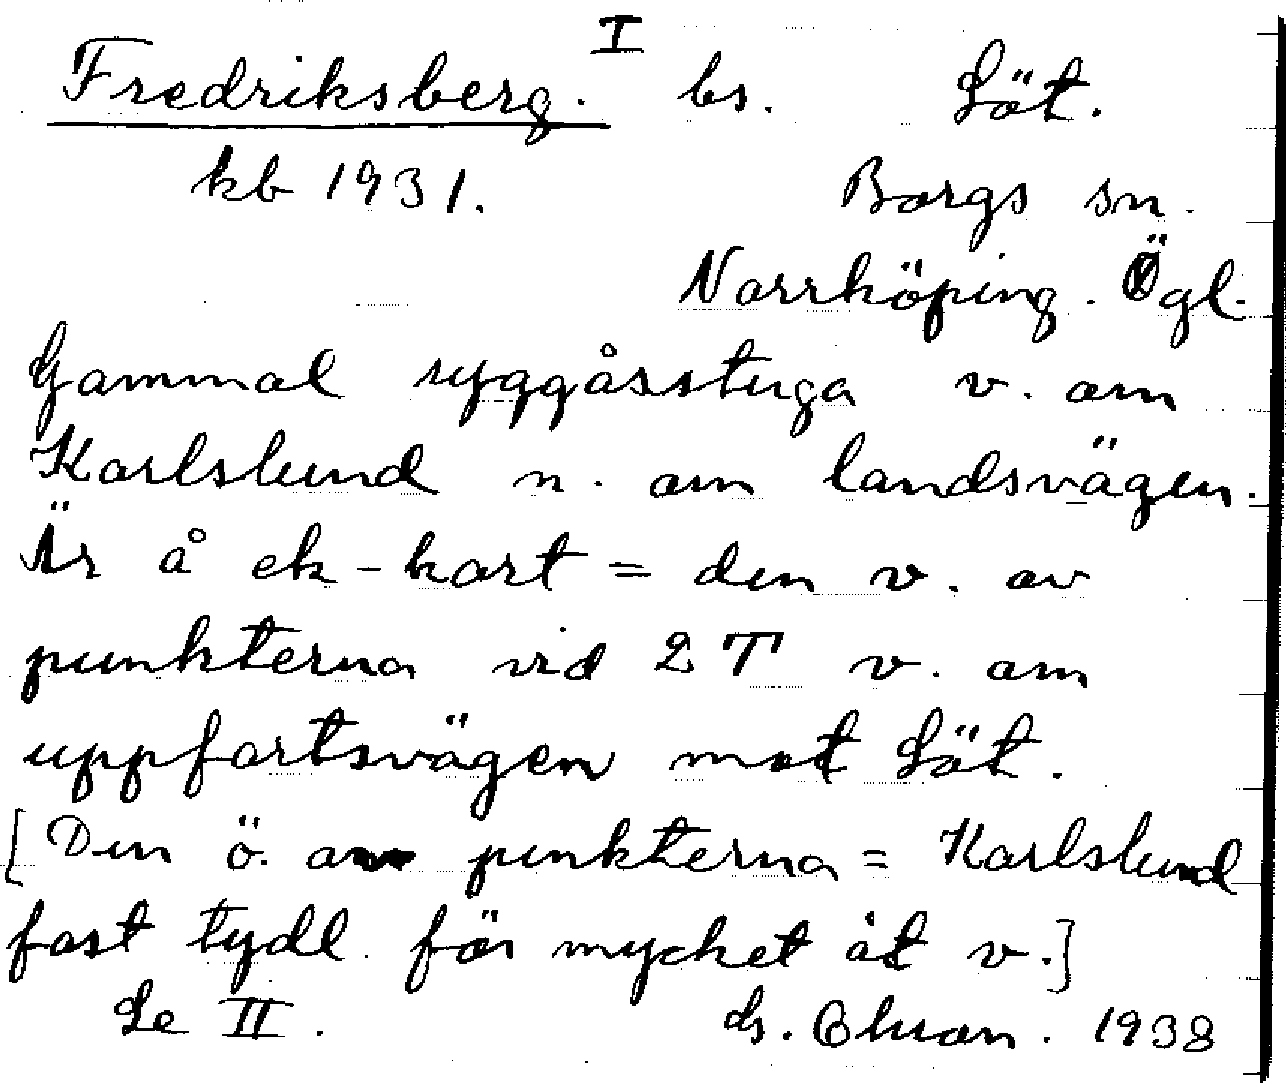 I
Fredriksberg. bs. Löt.
kb 1931. Borgs sn.
Norrköping. Ögl.
Gammal ryggåsstuga v. om
Karlslund n. om landsvägen.
Är å ek-kart = den v. av
punkterna vid 2 T v. om
uppfartsvägen mot Löt.
[Den ö. av punkterna = Karlslund
fast tydl. för mycket åt v.]
Se II. 1938